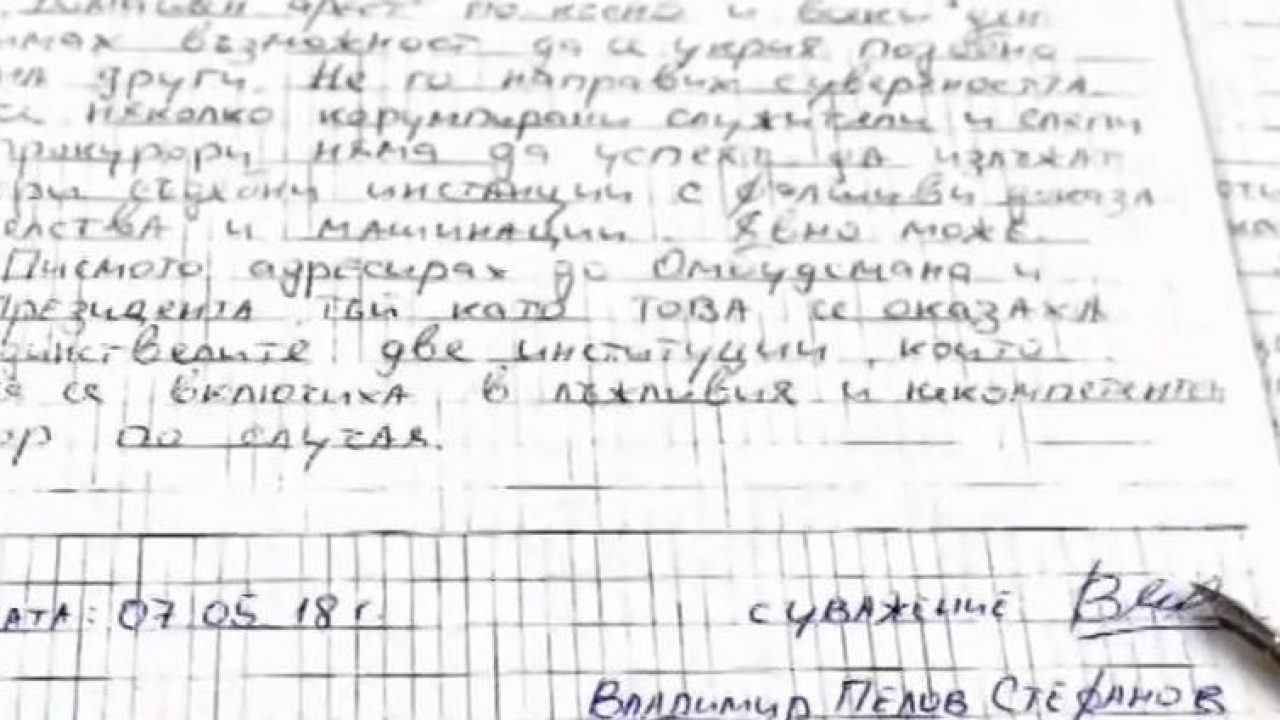 арест по късно и всеки ден
имах възможност да се укрия подобно
на други. Не го направих с увереността
че няколко корумпирани служители и слепи
прокурори няма да успеят да излъжат
при съдебни инстанции с фалшиви доказа
елства и машинации. Явно може.
Писмото адресирах до Омбудсмана и
Президента тъй като това се оказаха
единствените две институции които
не се включиха в лъжливия и некомпетентен
ор по случая.
АТА: 07 05 18 г.
с уважение
Владимир Пелов Стефанов